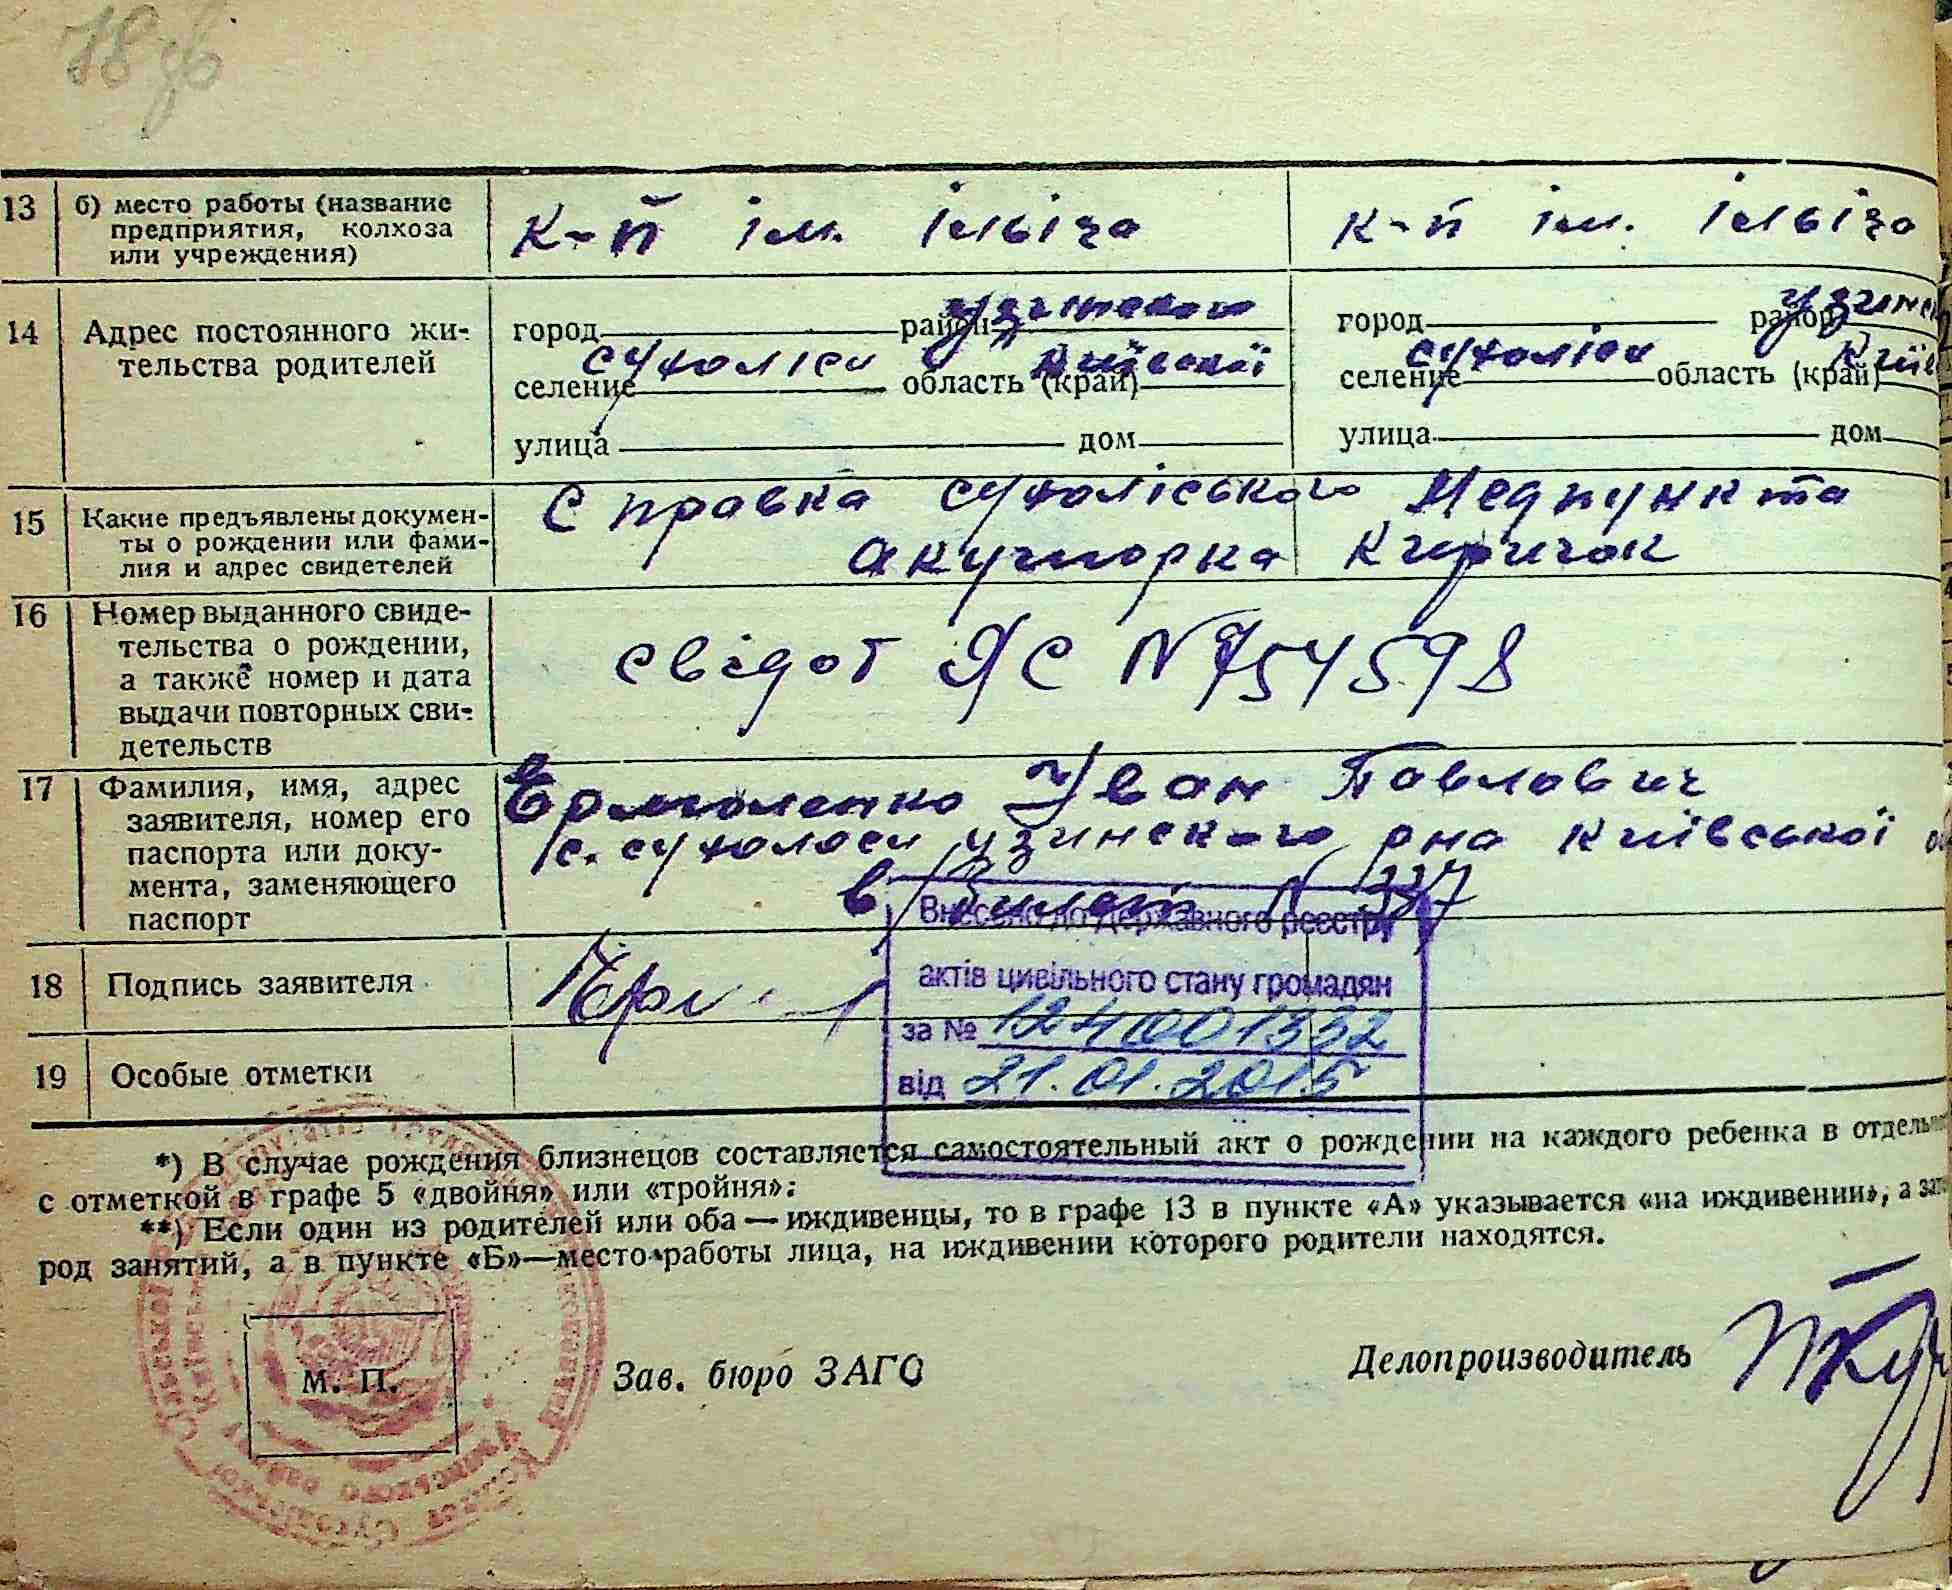 13 б) место работы (название
предприятия, колхоза
или учреждения)
к-п ім. Ілліча
к-п ім. Ілліча
14 Адрес постоянного жи-
тельства родителей
город район узинского
селение сухоліси область (край) київської
улица дом
город район узинс
селение сухоліси область (край) Київ
улица дом
15 Какие предъявлены докумен-
ты о рождении или фами-
лия и адрес свидетелей
Справка сухоліського Медпункта
акушорка Киричок
16 Номер выданного свиде-
тельства о рождении,
а также номер и дата
выдачи повторных сви-
детельств
свідот ЯС N 754598
17 Фамилия, имя, адрес
заявителя, номер его
паспорта или доку-
мента, заменяющего
паспорт
Ермоленко Іван Павлович
с. сухолеси узинского рна київської
в/білет N
Внесено до Державного реєстру
актів цивільного стану громадян
за № 124001332
від 21.01.2015
18 Подпись заявителя
19 Особые отметки
*) В случае рождения близнецов составляется самостоятельный акт о рождении на каждого ребенка в отдель
с отметкой в графе 5 «двойня» или «тройня»:
**) Если один из родителей или оба — иждивенцы, то в графе 13 в пункте «А» указывается «на иждивении», а зат
род занятий, а в пункте «Б»—место работы лица, на иждивении которого родители находятся.
М. П.
Зав. бюро ЗАГС
Делопроизводитель